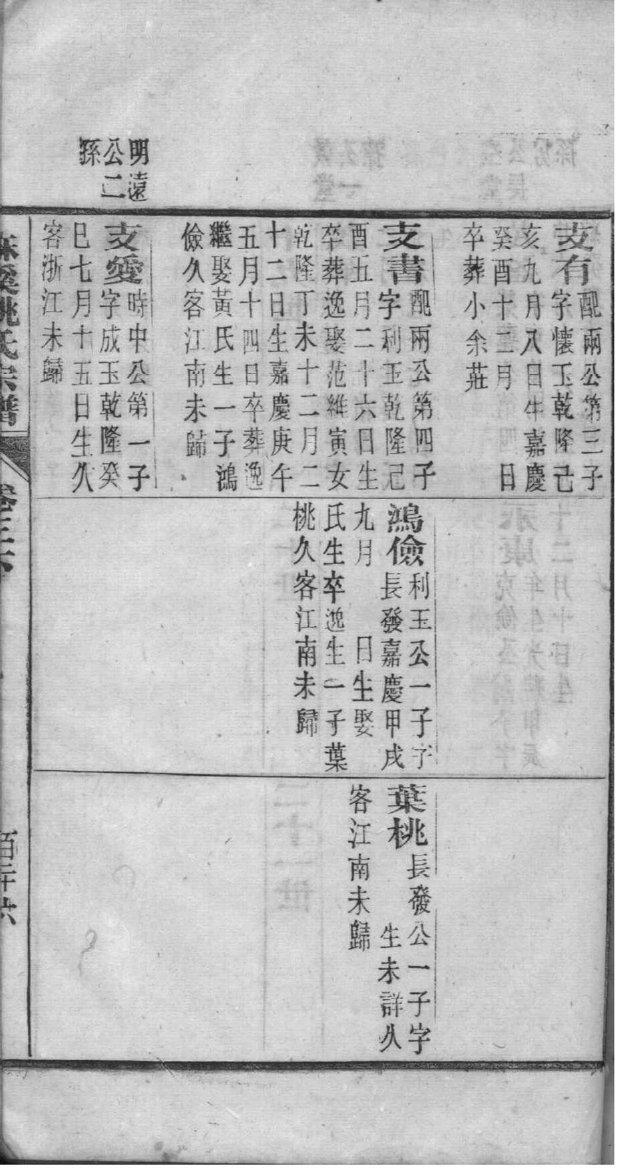 支有
配兩公第三子
字懷玉乾隆己
亥九月八日生嘉慶
癸酉十二月　　日
卒葬小余莊
支書
配兩公第四子
字利玉乾隆己
酉五月二十六日生
卒葬逸娶范維寅女
乾隆丁未十二月二
十二日生嘉慶庚午
五月十四日卒葬逸
繼娶黃氏生一子鴻
儉久客江南未歸
明遠
公二
孫
支愛
時中公第一子
字成玉乾隆癸
巳七月十五日生久
客浙江未歸
鴻儉
利玉公一子字
長發嘉慶甲戌
九月　　日生娶
氏生卒逸生一子葉
桃久客江南未歸
葉桃
長發公一子字
生未詳久
客江南未歸
麻溪姚氏宗譜
卷三六